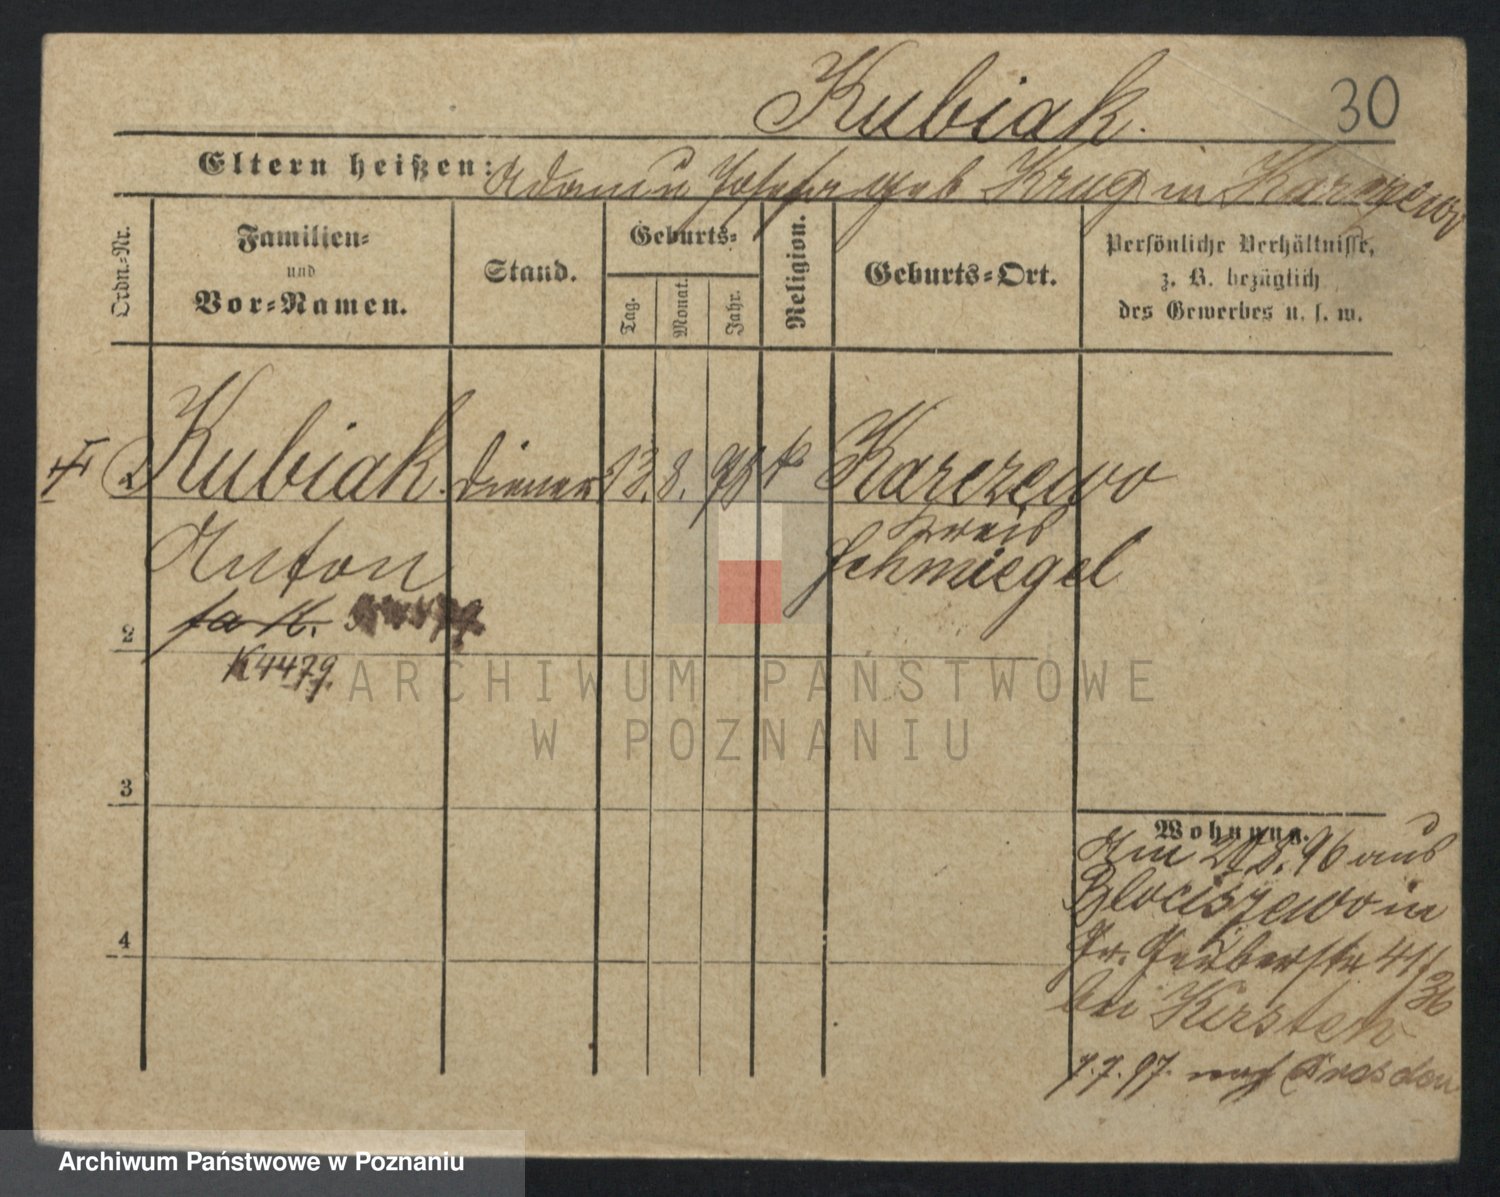 30
Kubiak.
Eltern heißen: Adam u Josefa geb Krug in Karczewo
Ordn.-Nr.
Familien-
und
Vor-Namen.
Stand.
Geburts-
Tag.
Monat.
Jahr.
Religion.
Geburts-Ort.
Persönliche Verhältnisse,
z. B. bezüglich
des Gewerbes u. s. w.
Kubiak. Diener 13. 8. 78 k Karczewo
Kreis
Anton Schmiegel
2
K4479.
3
4
Wohnung.
Am 20/8. 96 aus
Blociszewo in
Gr. Gerberstr 41/36
bei Kirsten
7.7.97. nach Dresden
ARCHIWUM PAŃSTWOWE
W POZNANIU
Archiwum Państwowe w Poznaniu